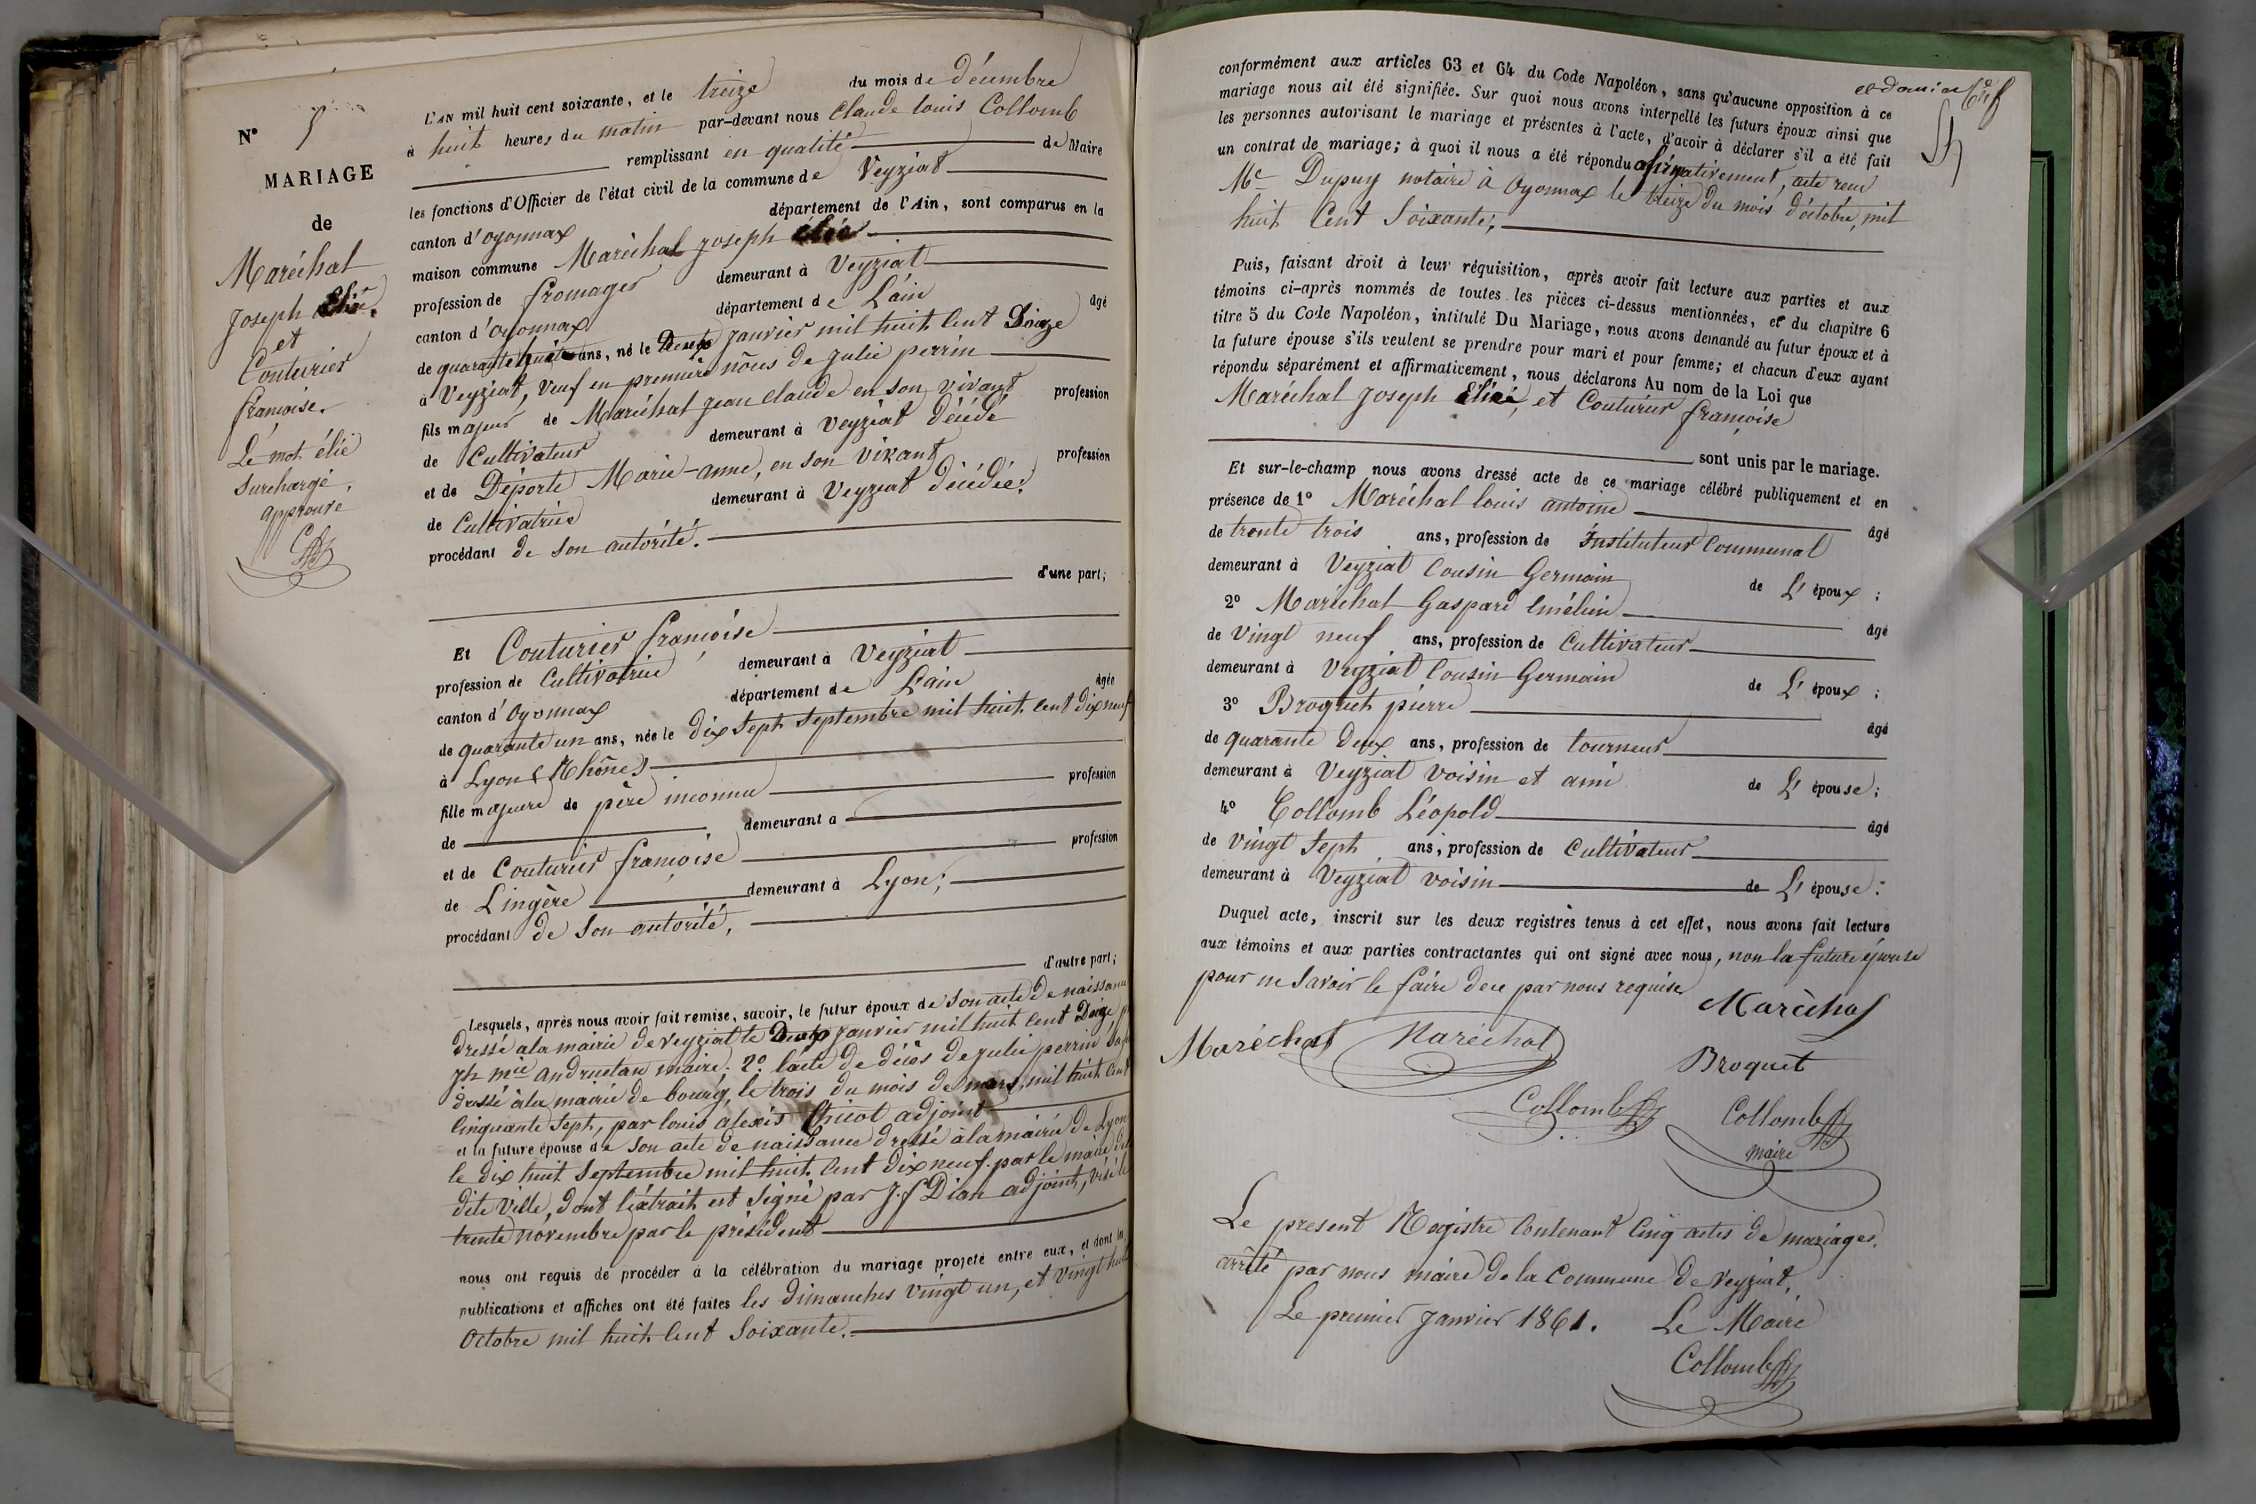 N° 5
MARIAGE
de
Maréchal
Joseph Elie.
et
Couturier
françoise.
Le mot élie
surchargé.
approuvé
L'AN mil huit cent soixante, et le treize du mois de décembre
à huit heures du matin par-devant nous Claude louis Collomb
remplissant en qualité de Maire
les fonctions d'Officier de l'état civil de la commune de Veyziat
canton d'oyonnax département de l'Ain, sont comparus en la
maison commune Maréchal joseph élie
profession de fromager demeurant à Veyziat
canton d'Oyonnax département de L'ain âgé
de quarante huit ans, né le janvier mil huit Cent Douze
à Veyziat, veuf en première nôces de julie perrin
fils majeur de Maréchal jean claude en son vivant profession
de Cultivateur demeurant à Veyziat Décédé
et de Déporte Marie-anne, en son vivant profession
de Cultivatrice demeurant à Veyziat décédée.
procédant de son autorité.
d'une part;
Et Couturier françoise
profession de Cultivatrice demeurant à Veyziat
canton d'Oyonnax département de L'ain âgée
de quarante un ans, née le dix sept septembre mil huit cent dix neuf
à Lyon (Rhône)
fille majeure de père inconnu profession
de demeurant à
et de Couturier françoise profession
de Lingère demeurant à Lyon;
procédant de son autorité,
d'autre part;
Lesquels, après nous avoir fait remise, savoir, le futur époux de son acte de naissance
dressé à la mairie de veyziat le janvier mil huit cent Douze
maire. 2° l'acte de décès de julie perrin
dressé à la mairie de bourg, le trois du mois de mars, mil huit cent
Cinquante sept, par louis alexis adjoint
et la future épouse de son acte de naissance dressé à la mairie de Lyon
le dix huit septembre mil huit Cent dix neuf par le maire de
dite Ville, dont l'extrait est signé par J. f Dian adjoint, visé le
trente novembre par le président
nous ont requis de procéder à la célébration du mariage projeté entre eux, et dont les
publications et affiches ont été faites les dimanches vingt un, et vingt huit
Octobre mil huit Cent Soixante.
conformément aux articles 63 et 64 du Code Napoléon, sans qu'aucune opposition à ce
mariage nous ait été signifiée. Sur quoi nous avons interpellé les futurs époux ainsi que
les personnes autorisant le mariage et présentes à l'acte, d'avoir à déclarer s'il a été fait
un contrat de mariage; à quoi il nous a été répondu affirmativement, acte reçu
Me Dupuy notaire à Oyonnax le treize du mois d'octobre, mil
huit Cent Soixante;
Puis, faisant droit à leur réquisition, après avoir fait lecture aux parties et aux
témoins ci-après nommés de toutes les pièces ci-dessus mentionnées, et du chapitre 6
titre 5 du Code Napoléon, intitulé Du Mariage, nous avons demandé au futur époux et à
la future épouse s'ils veulent se prendre pour mari et pour femme; et chacun d'eux ayant
répondu séparément et affirmativement, nous déclarons Au nom de la Loi que
Maréchal joseph Elie, et Couturier françoise
sont unis par le mariage.
Et sur-le-champ nous avons dressé acte de ce mariage célébré publiquement et en
présence de 1° Maréchal louis antoine âgé
de trente trois ans, profession de Instituteur Communal
demeurant à Veyziat Cousin Germain de L'époux;
2° Maréchal Gaspard Emélien âgé
de vingt neuf ans, profession de Cultivateur
demeurant à Veyziat Cousin Germain de L'époux;
3° Broquet pierre âgé
de quarante deux ans, profession de tourneur
demeurant à Veyziat voisin et ami de L'épouse;
4° Collomb Léopold âgé
de vingt sept ans, profession de Cultivateur
demeurant à Veyziat voisin de L'épouse:
Duquel acte, inscrit sur les deux registres tenus à cet effet, nous avons fait lecture
aux témoins et aux parties contractantes qui ont signé avec nous, non la future épouse
pour ne savoir le faire de ce par nous requise
Maréchal
Maréchal Maréchal
Broquet
Collomb Collomb
maire
Le present Registre Contenant Cinq actes de mariages.
arrêté par nous maire de la Commune de Veyziat,
Le premier Janvier 1861. Le Maire
Collomb